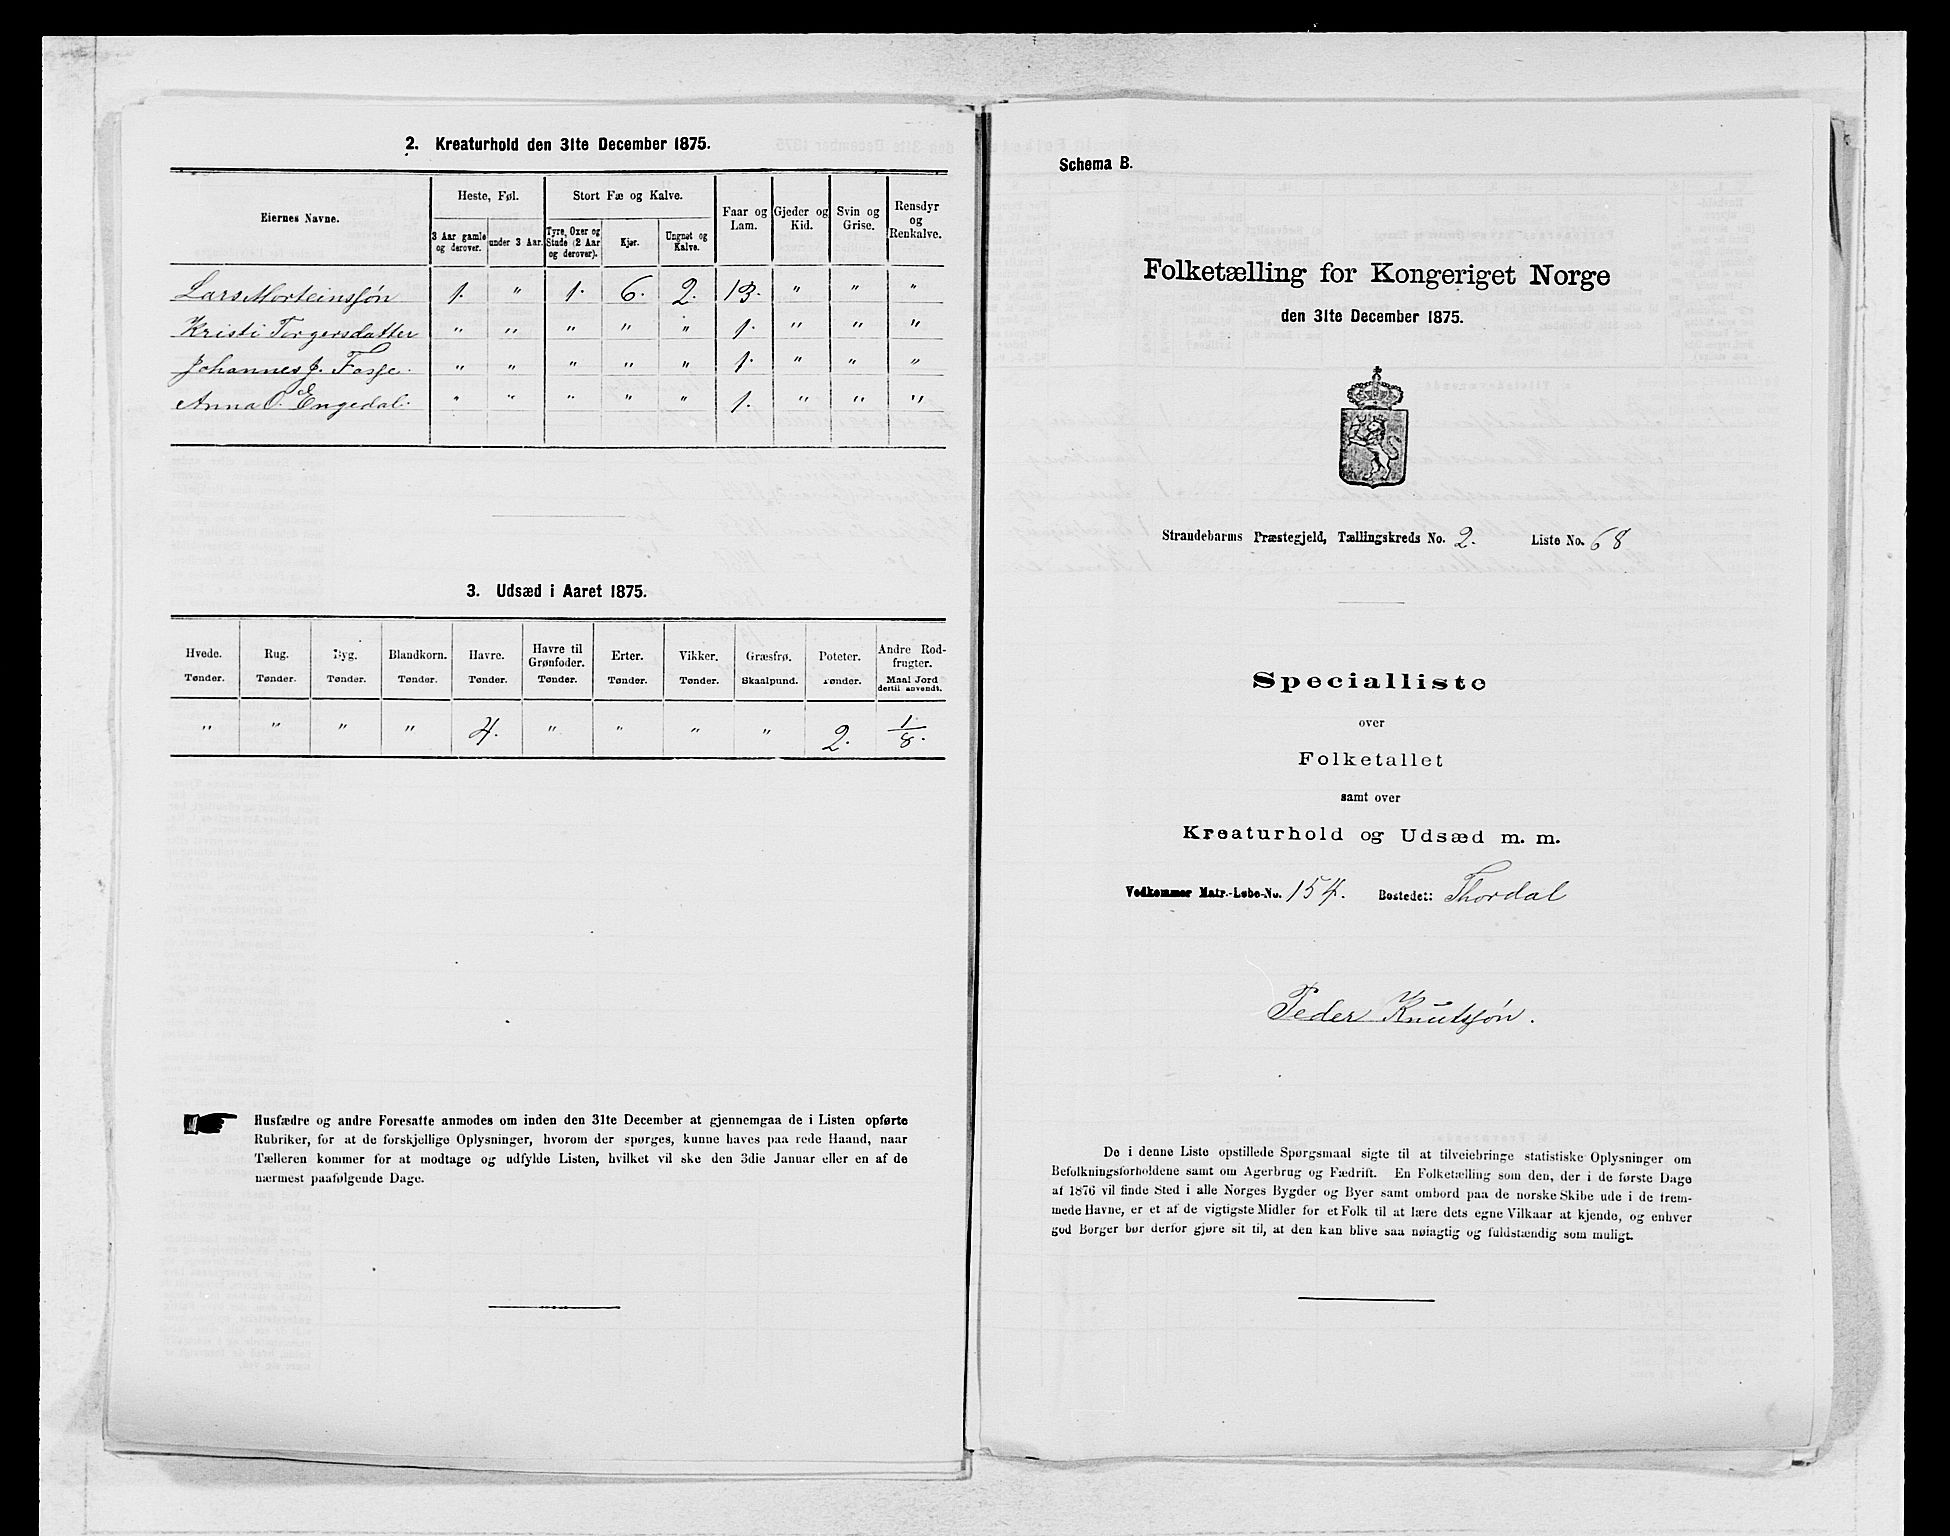 2. Kreaturhold den 31te December 1875.
Eiernes Navne. Heste, Føl. Stort Fæ og Kalve. Faar og Lam. Gjeder og Kid. Svin og Grise. Rensdyr og Renkalve.
3 Aar gamle og derover. under 3 Aar. Tyre, Oxer og Stude (2 Aar og derover). Kjør. Ungnøt og Kalve.
Lars Morteinssøn 1. " 1. 6. 2. 13. " " "
Kristi Torgersdatter " " " " " 1. " " "
Johannes J. Fosse. " " " " " 1. " " "
Anna O. Engedal. " " " " " 1. " " "
3. Udsæd i Aaret 1875.
Hvede. Rug. Byg. Blandkorn. Havre. Havre til Grønfoder. Erter. Vikker. Græsfrø. Poteter. Andre Rodfrugter.
Tønder. Tønder. Tønder. Tønder. Tønder. Tønder. Tønder. Tønder. Skaalpund. Tønder. Maal Jord dertil anvendt.
" " " " 4. " " " " 2. 1/8.
Husfædre og andre Foresatte anmodes om inden den 31te December at gjennemgaa de i Listen opførte
Rubriker, for at de forskjellige Oplysninger, hvorom der spørges, kunne haves paa rede Haand, naar
Tælleren kommer for at modtage og udfylde Listen, hvilket vil ske den 3die Januar eller en af de
nærmest paafølgende Dage.
Schema B.
Folketælling for Kongeriget Norge
den 31te December 1875.
Strandebarms Præstegjeld, Tællingskreds No. 2. Liste No. 68
Specialliste
over
Folketallet
samt over
Kreaturhold og Udsæd m. m.
Vedkommer Matr.-Løbe-No. 154. Bostedet: Thordal
Peder Knutssøn.
De i denne Liste opstillede Spørgsmaal sigte til at tilveiebringe statistiske Oplysninger om
Befolkningsforholdene samt om Agerbrug og Fædrift. En Folketælling som den, der i de første Dage
af 1876 vil finde Sted i alle Norges Bygder og Byer samt ombord paa de norske Skibe ude i de frem-
mede Havne, er et af de vigtigste Midler for et Folk til at lære dets egne Vilkaar at kjende, og enhver
god Borger bør derfor gjøre sit til, at den kan blive saa nøiagtig og fuldstændig som muligt.